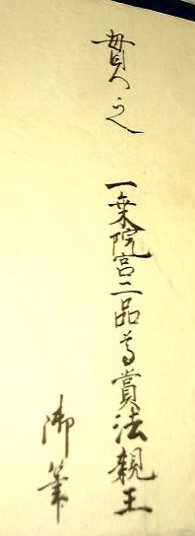 貫之
一乗院宮二品尊賞法親王
御筆